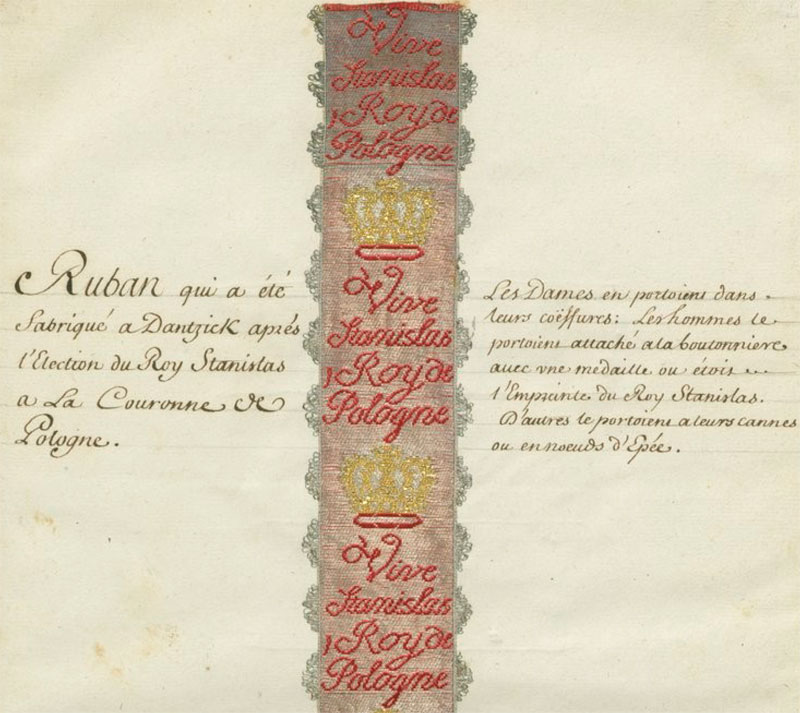 Vive
Stanislas
Roy de
Pologne
Vive
Stanislas
Roy de
Pologne
Vive
Stanislas
Roy de
Pologne
Ruban qui a été
fabriqué a Dantzick aprés
l'Election du Roy Stanislas
a La Couronne de
Pologne.
Les Dames en portoient dans
leurs coëffures: Les hommes le
portoient attaché a la boutonniere
avec une medaille ou étoit
l'Empreinte du Roy Stanislas.
D'autres le portoient a leurs cannes
ou en noeuds d'Epée.